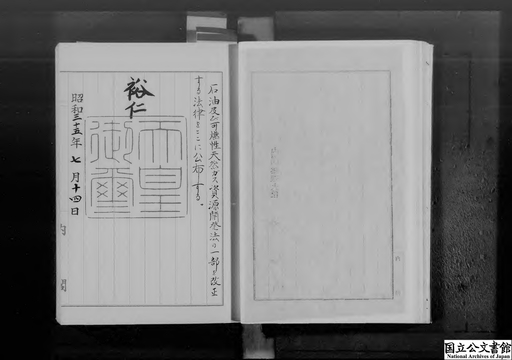 石油及び可燃性天然ガス資源開発法の一部を改正
する法律をここに公布する。
裕仁
天皇
御璽
昭和三十五年七月十四日
内
閣
国立公文書館
National Archives of Japan